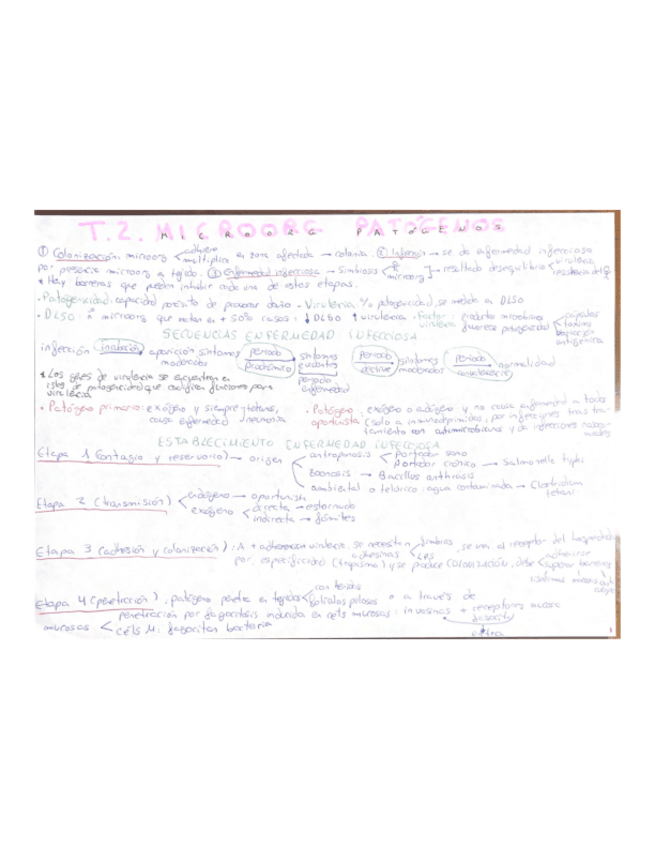 T.2. MICROORG PATÓGENOS
① Colonización: microorg < adhiere multiplica en zona afectada → colonia. ② Infección → se da enfermedad infecciosa
por presencia microorg a tejido. ③ Enfermedad infecciosa → Simbiosis microorg → resultado desequilibrio < virulencia resistencia
* Hay barreras que pueden inhibir cada una de estas etapas.
· Patogenicidad: capacidad parásito de provocar daño · Virulencia: % patogenicidad, se mide a DL50
· DL50: nº microorg que matan en + 50% casos: ↓ DL50 ↑ virulencia · Factor virulencia: productos microbianos favorece patogenicidad < cápsulas toxinas variación antigénica
SECUENCIAS ENFERMEDAD INFECCIOSA
infección (incubación) aparición síntomas moderados (período prodrómico) síntomas evidentes período enfermedad (período declive) síntomas moderados (período convalescencia) normalidad
* Los genes de virulencia se encuentran en
islas de patogenicidad que codifican funciones para
virulencia
· Patógeno primario: exógeno y siempre
causa enfermedad
neumonia
· Patógeno oportunista: exógeno o endógeno y no causa enfermedad a todos
(solo a inmunodeprimidos, por infecciones tras tratamiento con antimicrobianos y de infecciones
ESTABLECIMIENTO ENFERMEDAD INFECCIOSA
Etapa 1 (contagio y reservorio) → origen
antroponosis < Portador sano
Portador crónico → Salmonella typhi
zoonosis → Bacillus anthracis
ambiental o telúrico: agua contaminada → Clostridium tetani
Etapa 2 (transmisión) < endógeno → oportunista
exógeno < directa → estornudo
indirecta → fómites
Etapa 3 (adhesión y colonización): A + adherencia + virulencia. se necesitan adhesinas < fimbrias LPS, se une al receptor del hospedador
por especificidad (tropismo) y se produce COLONIZACIÓN, debe < adherirse superar barreras
Etapa 4 (penetración). patógeno penetra en tejidos < con tejidos folículos pilosos o a través de
mucosas < penetración por fagocitosis inducida en céls mucosas: invasinas + receptores mucosa
céls M: fagocitan bacteria